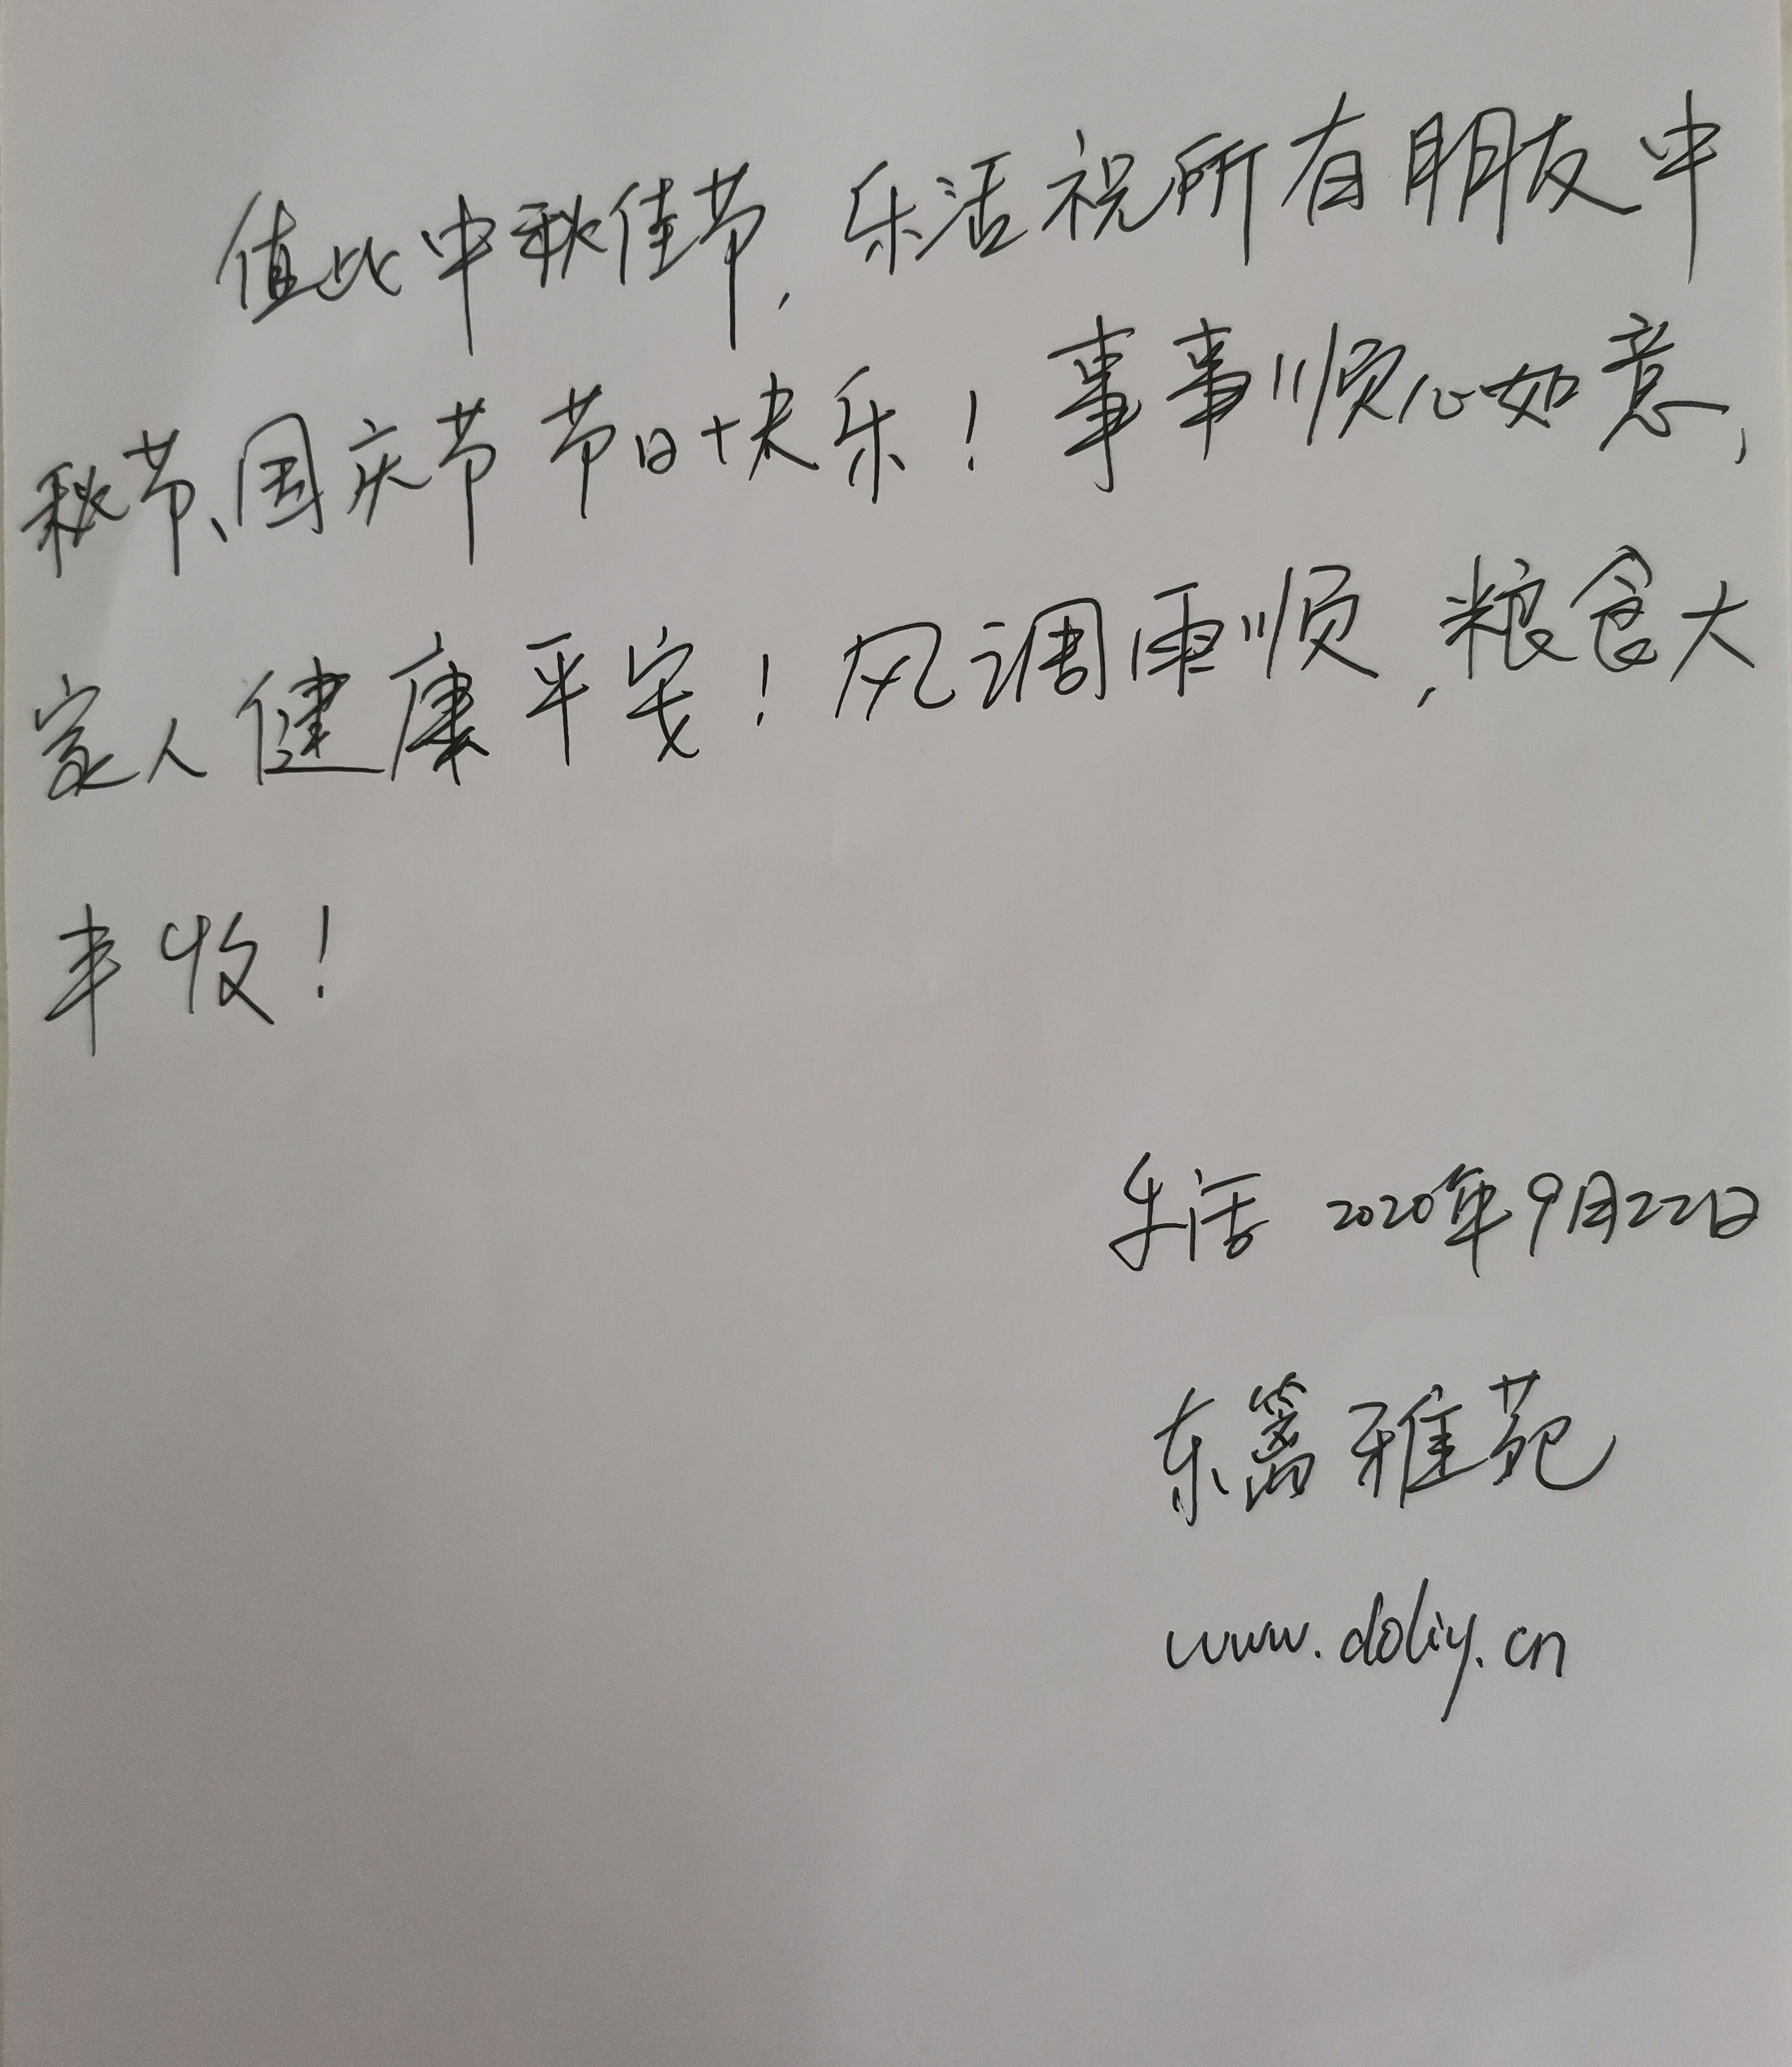 值此中秋佳节，乐活祝所有朋友中
秋节、国庆节节日快乐！事事顺心如意，
家人健康平安！风调雨顺，粮食大
丰收！
乐活 2020年9月22日
东篱雅苑
www.doliy.cn